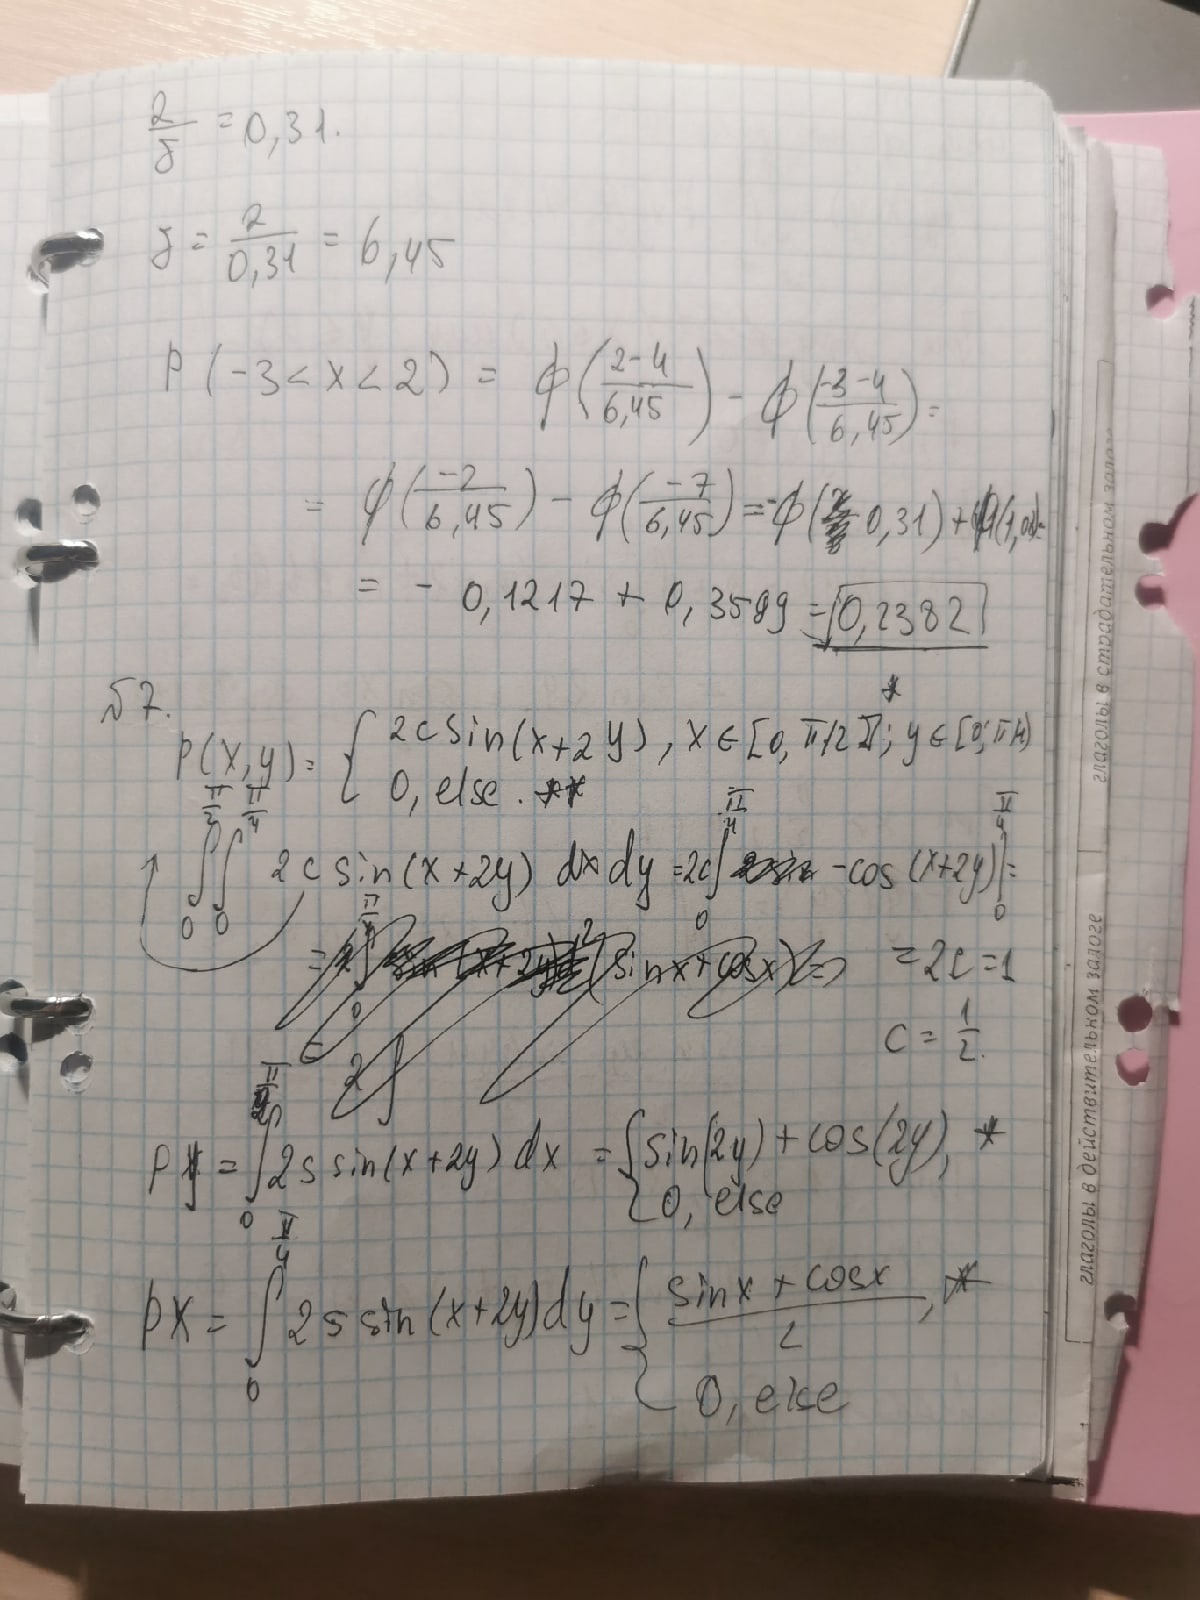 2/σ = 0,31.
σ = 2/0,31 = 6,45
P(-3 < x < 2) = ϕ((2-4)/6,45) - ϕ((-3-4)/6,45) =
= ϕ(-2/6,45) - ϕ(-7/6,45) = -ϕ(0,31) + ϕ(1,08) =
= - 0,1217 + 0,3599 = 0,2382
№7.
*
p(x,y) = { 2c sin(x+2y), x ∈ [0, π/2]; y ∈ [0; π/4]
0, else. **
∫₀^{π/2} ∫₀^{π/4} 2c sin(x+2y) dx dy = 2c ∫₀^{π/4} -cos(x+2y) |₀^{π/4} =
= 2c = 1
c = 1/2.
py = ∫₀^{π/2} 2s sin(x+2y) dx = { sin(2y) + cos(2y), *
0, else
px = ∫₀^{π/4} 2s sin(x+2y) dy = { (sinx + cosx)/2, *
0, else
глаголы в страдательном залоге
глаголы в действительном залоге